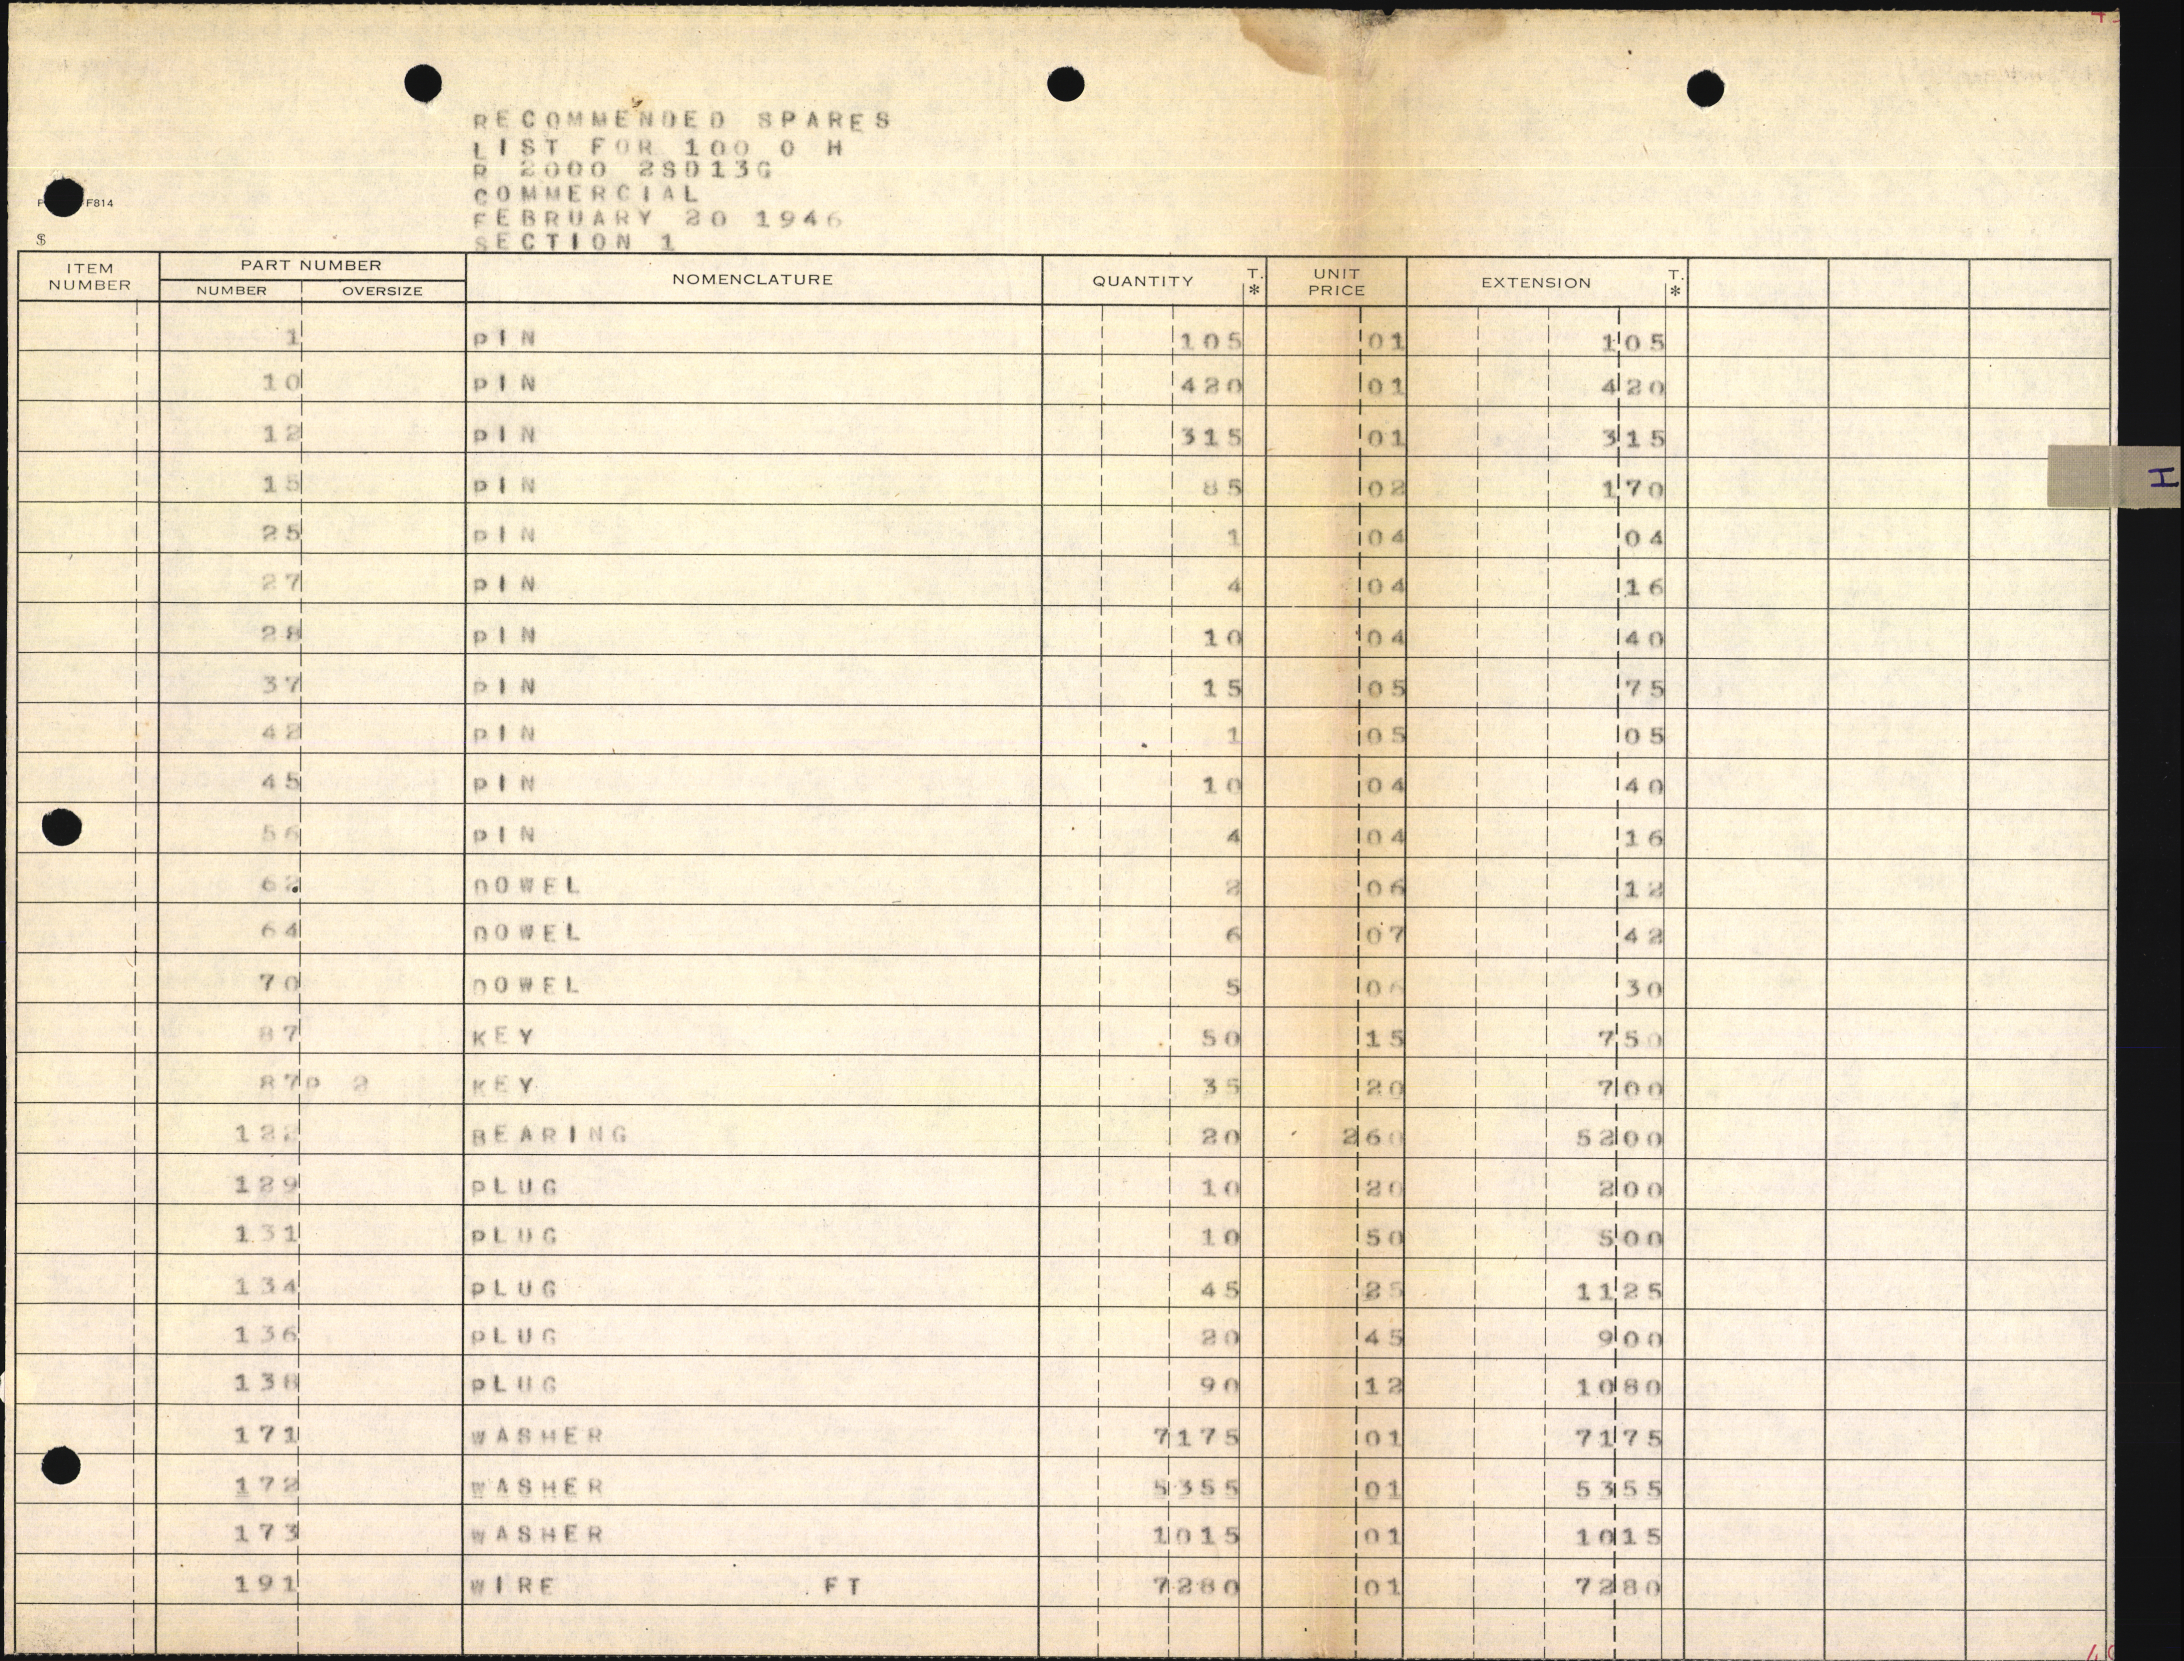 RECOMMENDED SPARES
LIST FOR 100 O H
R 2000 2SD13G
COMMERCIAL
FEBRUARY 20 1946
SECTION 1
F814
$
ITEM NUMBER PART NUMBER NUMBER OVERSIZE NOMENCLATURE QUANTITY T. * UNIT PRICE EXTENSION T. *
1 PIN 105 01 105
10 PIN 420 01 420
12 PIN 315 01 315
H
15 PIN 85 02 170
25 PIN 1 04 04
27 PIN 4 04 16
28 PIN 10 04 40
37 PIN 15 05 75
42 PIN 1 05 05
45 PIN 10 04 40
56 PIN 4 04 16
62 DOWEL 2 06 12
64 DOWEL 6 07 42
70 DOWEL 5 06 30
87 KEY 50 15 750
87P 2 KEY 35 20 700
122 BEARING 20 260 5200
129 PLUG 10 20 200
131 PLUG 10 50 500
134 PLUG 45 25 1125
136 PLUG 20 45 900
138 PLUG 90 12 1080
171 WASHER 7175 01 7175
172 WASHER 5355 01 5355
173 WASHER 1015 01 1015
191 WIRE FT 7280 01 7280